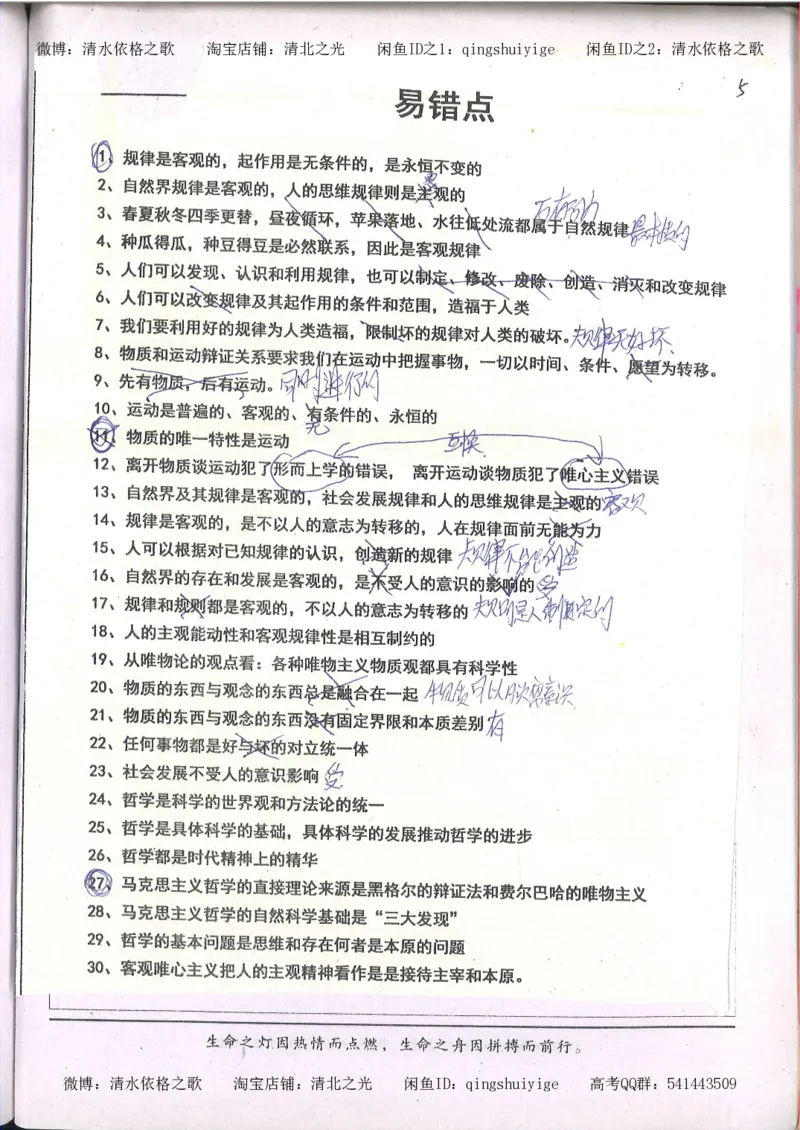 微博：清水依格之歌 淘宝店铺：清北之光 闲鱼ID之1：qingshuiyige 闲鱼ID之2：清水依格之歌
5
易错点
1、规律是客观的，起作用是无条件的，是永恒不变的
2、自然界规律是客观的，人的思维规律则是主观的
3、春夏秋冬四季更替，昼夜循环，苹果落地、水往低处流都属于自然规律
4、种瓜得瓜，种豆得豆是必然联系，因此是客观规律
5、人们可以发现、认识和利用规律，也可以制定、修改、废除、创造、消灭和改变规律
6、人们可以改变规律及其起作用的条件和范围，造福于人类
7、我们要利用好的规律为人类造福，限制坏的规律对人类的破坏。规律无好坏
8、物质和运动辩证关系要求我们在运动中把握事物，一切以时间、条件、愿望为转移。
9、先有物质，后有运动。同时进行的
10、运动是普遍的、客观的、有条件的、永恒的
无
11、物质的唯一特性是运动
互换
12、离开物质谈运动犯了形而上学的错误， 离开运动谈物质犯了唯心主义错误
13、自然界及其规律是客观的，社会发展规律和人的思维规律是主观的客观
14、规律是客观的，是不以人的意志为转移的，人在规律面前无能为力
15、人可以根据对已知规律的认识，创造新的规律 规律不能创造
16、自然界的存在和发展是客观的，是不受人的意识的影响的 受
17、规律和规则都是客观的，不以人的意志为转移的 规则是人制定的
18、人的主观能动性和客观规律性是相互制约的
19、从唯物论的观点看：各种唯物主义物质观都具有科学性
20、物质的东西与观念的东西总是融合在一起 物质可以脱离意识
21、物质的东西与观念的东西没有固定界限和本质差别 有
22、任何事物都是好与坏的对立统一体
23、社会发展不受人的意识影响 受
24、哲学是科学的世界观和方法论的统一
25、哲学是具体科学的基础，具体科学的发展推动哲学的进步
26、哲学都是时代精神上的精华
27、马克思主义哲学的直接理论来源是黑格尔的辩证法和费尔巴哈的唯物主义
28、马克思主义哲学的自然科学基础是“三大发现”
29、哲学的基本问题是思维和存在何者是本原的问题
30、客观唯心主义把人的主观精神看作是是接待主宰和本原。
生命之灯因热情而点燃，生命之舟因拼搏而前行。
微博：清水依格之歌 淘宝店铺：清北之光 闲鱼ID：qingshuiyige 高考QQ群：541443509